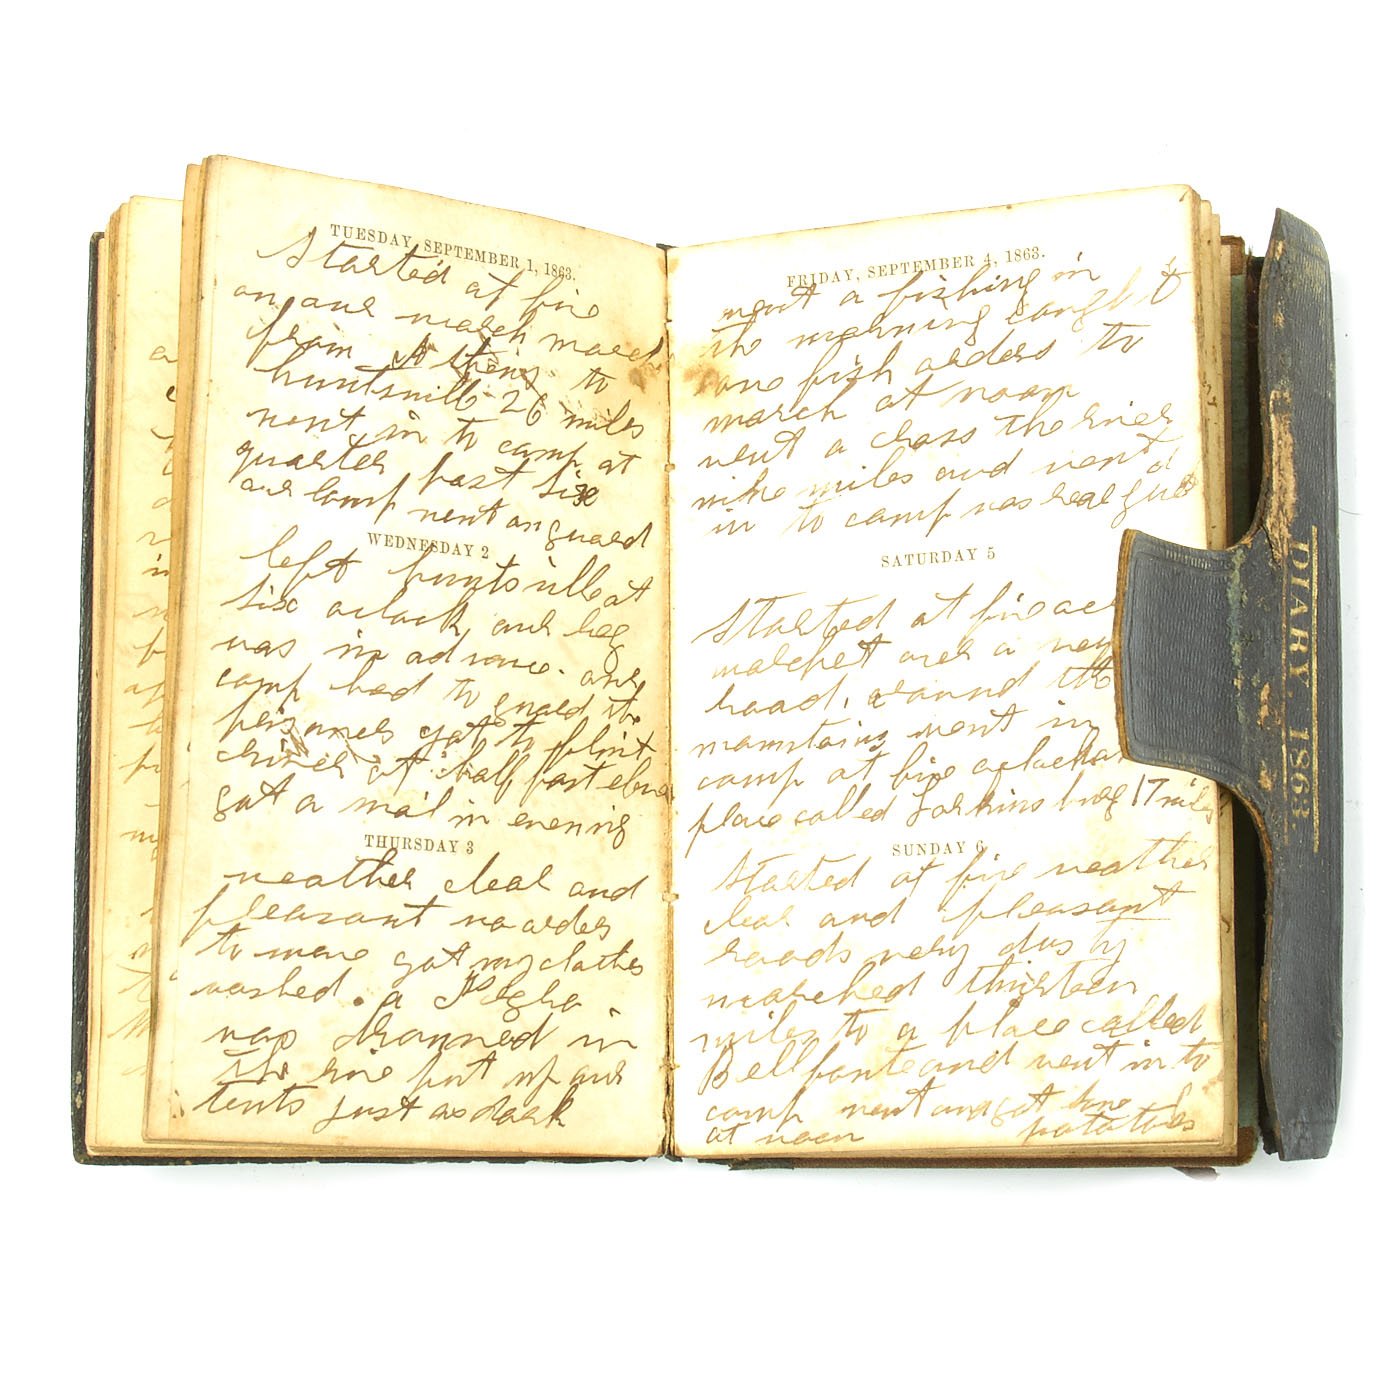 TUESDAY, SEPTEMBER 1, 1863.
Started at five
on our march march
from Athens to
huntsvill 26 miles
went in to camp at
quarter past six
our comp went on guard
WEDNESDAY 2
left huntsville at
six oclock our breg
was in advance. our
comp had to guard the
prisoners got to flint
at half past eleven
got a mail in evening
THURSDAY 3
weather clear and
pleasant no orders
to move got my clothes
washed. a
was drowned in
the put up our
tents just as dark
FRIDAY, SEPTEMBER 4, 1863.
went a fishing in
the morning caught
one fish orders to
march at noon
went a cross the river
nine miles and went
in to camp was
SATURDAY 5
Started at five
marched over a
road. around the
mountains went in
camp at five
place called Larkins 17 miles
SUNDAY 6
Started at five weather
clear and pleasant
roads very dusty
marched thirteen
miles to a place called
Bellfonte and went in to
camp went and got some
at noon potatoes
DIARY 1863.